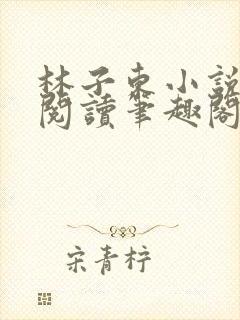 林子东小說
閱讀筆趣閣
宋青梓